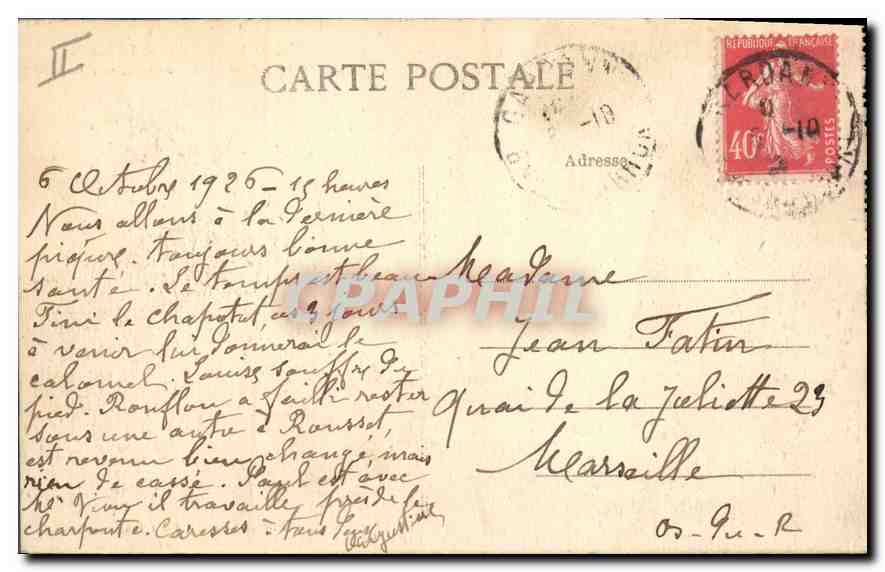 II
CARTE POSTALE
RÉPUBLIQUE FRANÇAISE
40c
POSTES
Adresse
6 Octobre 1926 - 15 heures
Nous allons à la dernière
piqure. toujours bonne
santé. Le temps est beau
Fini le chapotat, ces 3 jours
à venir lui donnerai le
calomel. Louise souffre du
pied. Rouflou a failli rester
sous une auto à Rousset,
est revenu bien changé, mais
rien de cassé. Paul est avec
Mr il travaille près de la
charpente. Caresses à tous deux
Augustine
Madame
Jean Fatin
Quai de la Joliette 23
Marseille
CPAPHIL